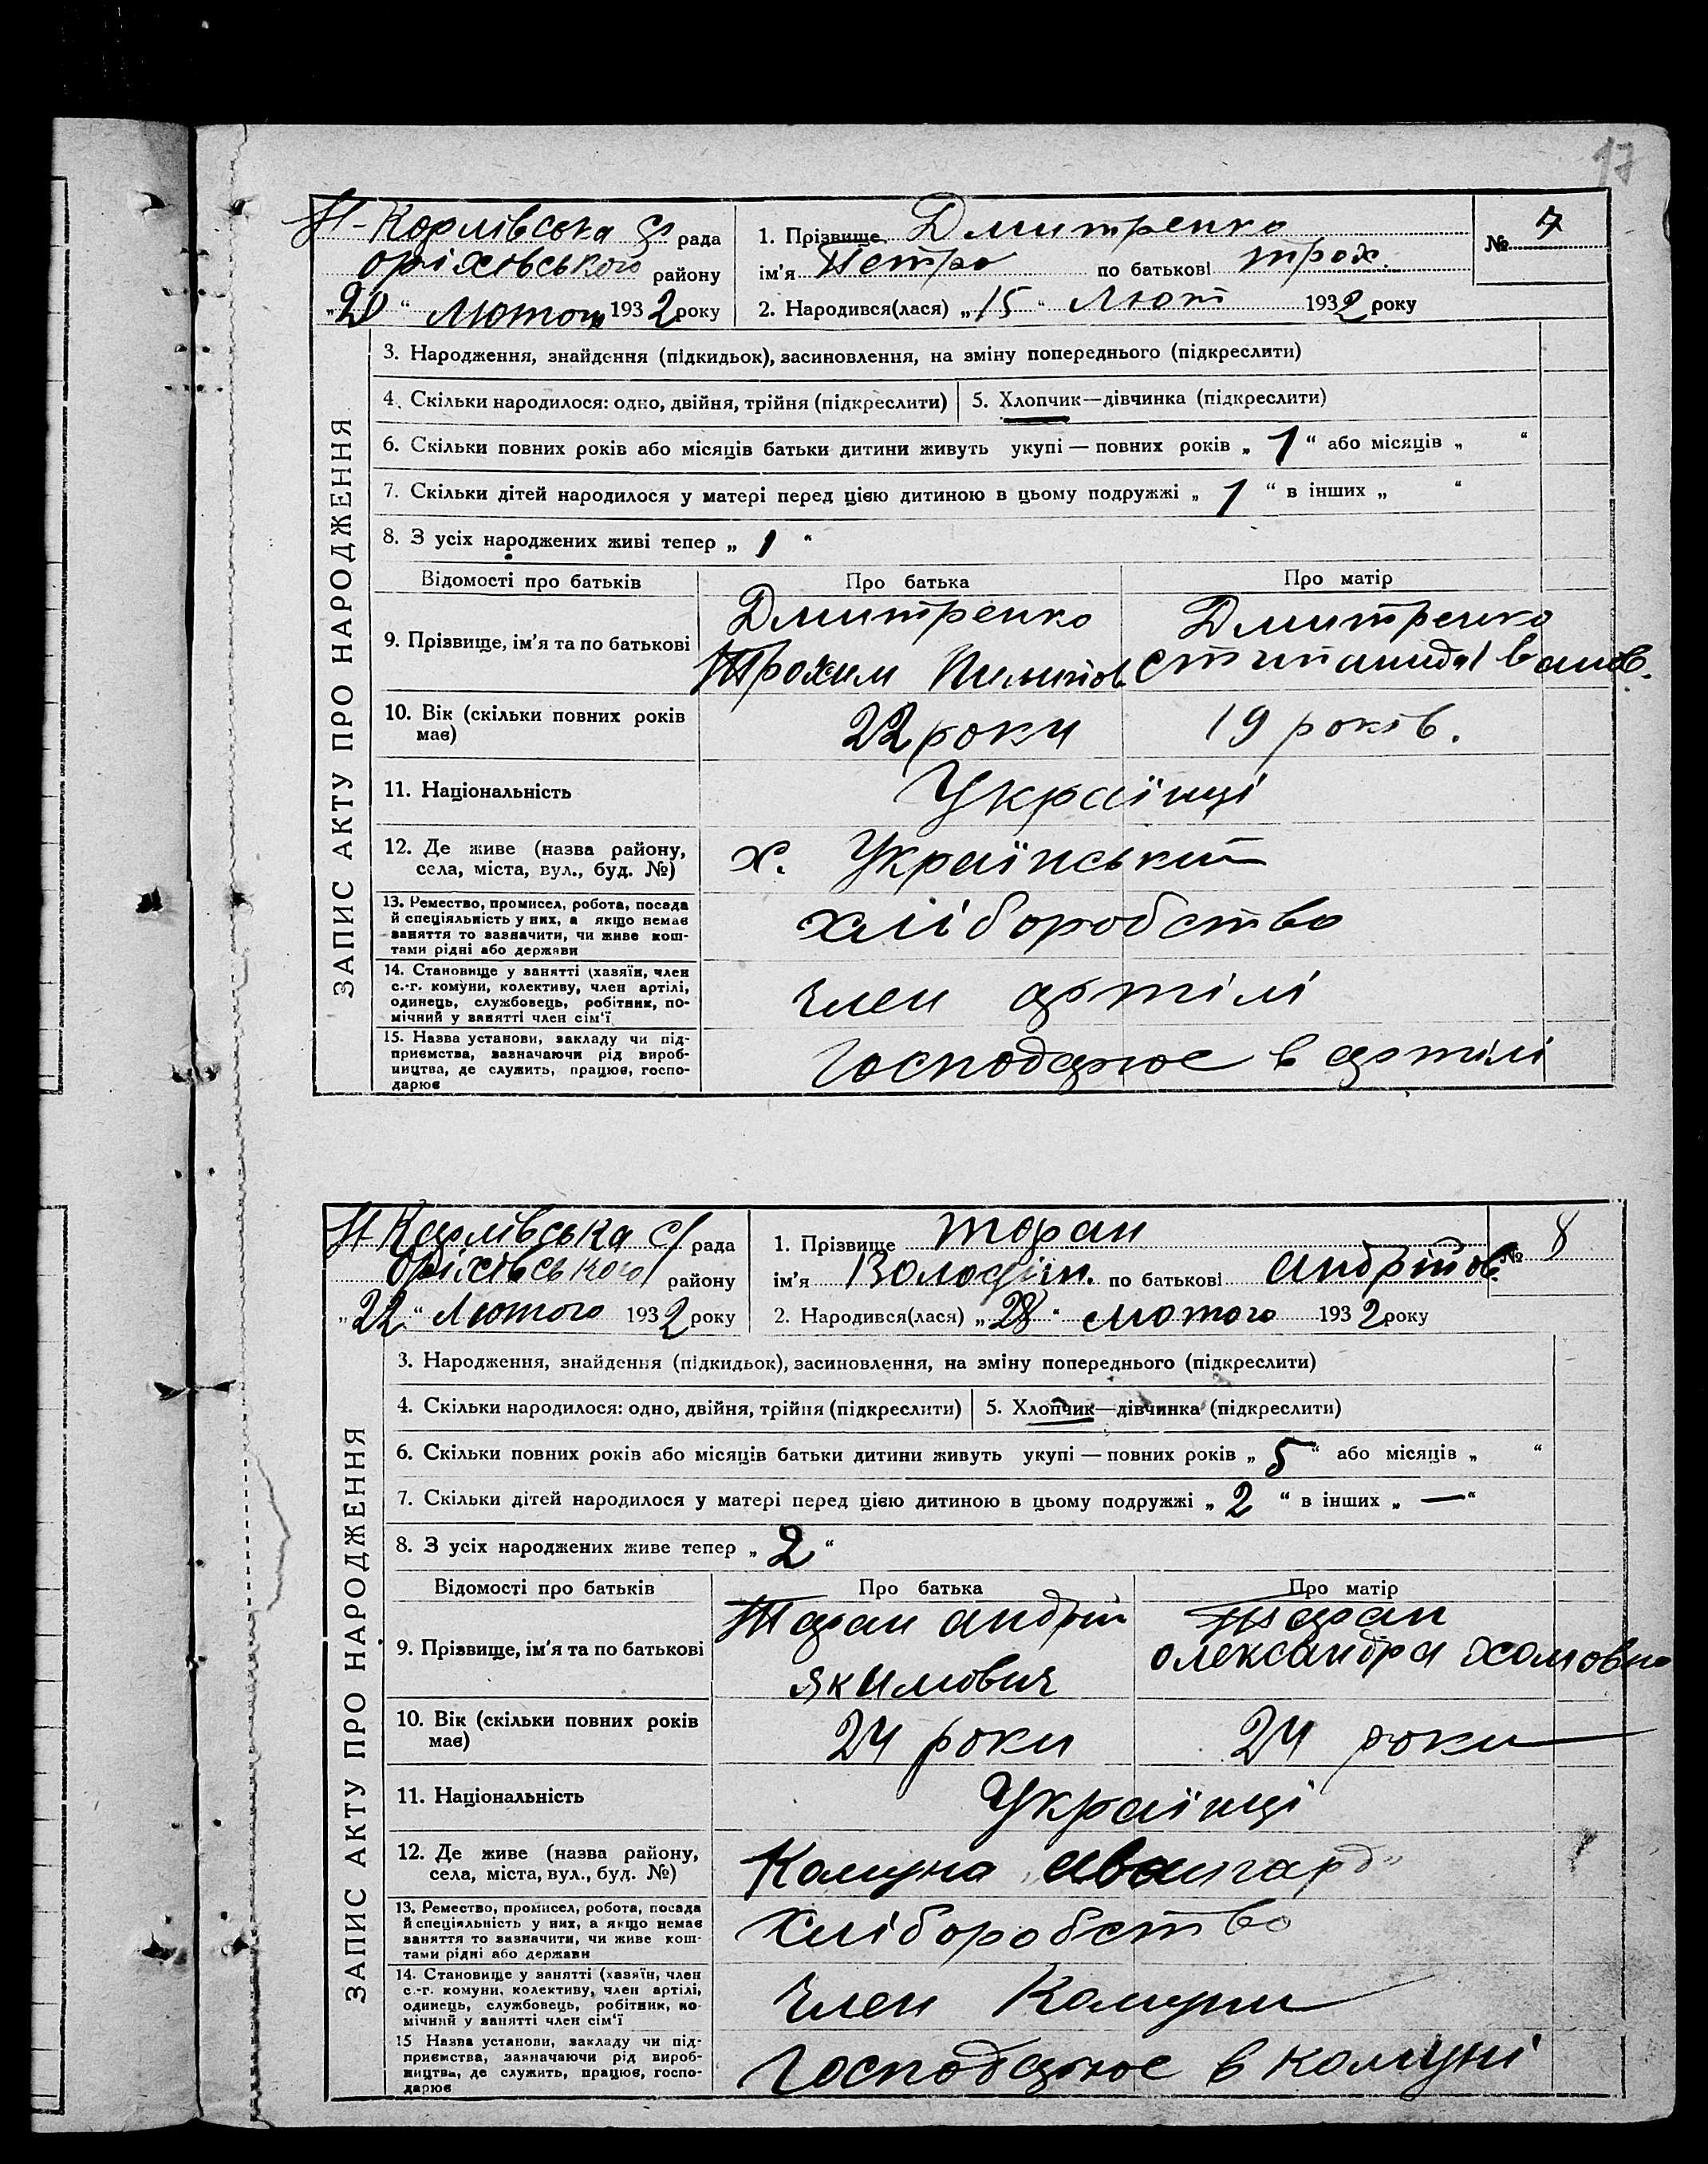 17
Н-Карлівська с/ рада
Оріхівського району
„20“ Лютого 1932 року
1. Прізвище Дмитренко
ім'я Петро по батькові трох.
2. Народився(лася) „15“ Лют 1932 року
№ 7
ЗАПИС АКТУ ПРО НАРОДЖЕННЯ
3. Народження, знайдення (підкидьок), засиновлення, на зміну попереднього (підкреслити)
4. Скільки народилося: одно, двійня, трійня (підкреслити) 5. Хлопчик—дівчинка (підкреслити)
6. Скільки повних років або місяців батьки дитини живуть укупі — повних років „1“ або місяців „ “
7. Скільки дітей народилося у матері перед цією дитиною в цьому подружжі „1“ в інших „ “
8. З усіх народжених живі тепер „1“
Відомості про батьків Про батька Про матір
9. Прізвище, ім'я та по батькові
Дмитренко
Трохим Пилипов.
Дмитренко
10. Вік (скільки повних років
має)
22 роки 19 років.
11. Національність Українці
12. Де живе (назва району,
села, міста, вул., буд. №)
х. Український
13. Ремество, промисел, робота, посада
й спеціяльність у них, а якщо немає
заняття то зазначити, чи живе кош-
тами рідні або держави
хліборобство
14. Становище у занятті (хазяїн, член
с.-г. комуни, колективу, член артілі,
одинець, службовець, робітник, по-
мічний у занятті член сім'ї
член артілі
15. Назва установи, закладу чи під-
приємства, зазначаючи рід вироб-
ництва, де служить, працює, госпо-
дарює
Господарює в артілі
Н Карлівська с/ рада
Оріхівського району
„22“ Лютого 1932 року
1. Прізвище Таран
ім'я Володим. по батькові Андрійов.
2. Народився(лася) „28“ Лютого 1932 року
№ 8
ЗАПИС АКТУ ПРО НАРОДЖЕННЯ
3. Народження, знайдення (підкидьок), засиновлення, на зміну попереднього (підкреслити)
4. Скільки народилося: одно, двійня, трійня (підкреслити) 5. Хлопчик—дівчинка (підкреслити)
6. Скільки повних років або місяців батьки дитини живуть укупі — повних років „5“ або місяців „ “
7. Скільки дітей народилося у матері перед цією дитиною в цьому подружжі „2“ в інших „—“
8. З усіх народжених живе тепер „2“
Відомості про батьків Про батька Про матір
9. Прізвище, ім'я та по батькові
Таран Андрій
Якимович
Таран
Олександра Хомовна
10. Вік (скільки повних років
має)
24 роки 24 роки
11. Національність Українці
12. Де живе (назва району,
села, міста, вул., буд. №)
Комуна „Авангард"
13. Ремество, промисел, робота, посада
й спеціяльність у них, а якщо немає
заняття то зазначити, чи живе кош-
тами рідні або держави
Хліборобство
14. Становище у занятті (хазяїн, член
с.-г. комуни, колективу, член артілі,
одинець, службовець, робітник, по-
мічний у занятті член сім'ї
Член Комуни
15 Назва установи, закладу чи під-
приємства, зазначаючи рід вироб-
ництва, де служить, працює, госпо-
дарює
Господарює в комуні